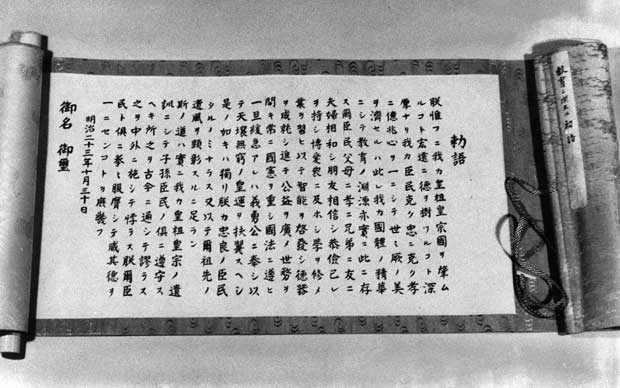 教育ニ関スル勅語
勅語
朕惟フニ我カ皇祖皇宗國ヲ肇ム
ルコト宏遠ニ德ヲ樹ツルコト深
厚ナリ我カ臣民克ク忠ニ克ク孝
ニ億兆心ヲ一ニシテ世々厥ノ美
ヲ濟セルハ此レ我カ國體ノ精華
ニシテ教育ノ淵源亦實ニ此ニ存
ス爾臣民父母ニ孝ニ兄弟ニ友ニ
夫婦相和シ朋友相信シ恭儉己レ
ヲ持シ博愛衆ニ及ホシ學ヲ修メ
業ヲ習ヒ以テ智能ヲ啓發シ德器
ヲ成就シ進テ公益ヲ廣メ世務ヲ
開キ常ニ國憲ヲ重シ國法ニ遵ヒ
一旦緩急アレハ義勇公ニ奉シ以
テ天壤無窮ノ皇運ヲ扶翼スヘシ
是ノ如キハ獨リ朕カ忠良ノ臣民
タルノミナラス又以テ爾祖先ノ
遺風ヲ顯彰スルニ足ラン
斯ノ道ハ實ニ我カ皇祖皇宗ノ遺
訓ニシテ子孫臣民ノ俱ニ遵守ス
ヘキ所之ヲ古今ニ通シテ謬ラス
之ヲ中外ニ施シテ悖ラス朕爾臣
民ト俱ニ拳々服膺シテ咸其德ヲ
一ニセンコトヲ庶幾フ
明治二十三年十月三十日
御名 御璽